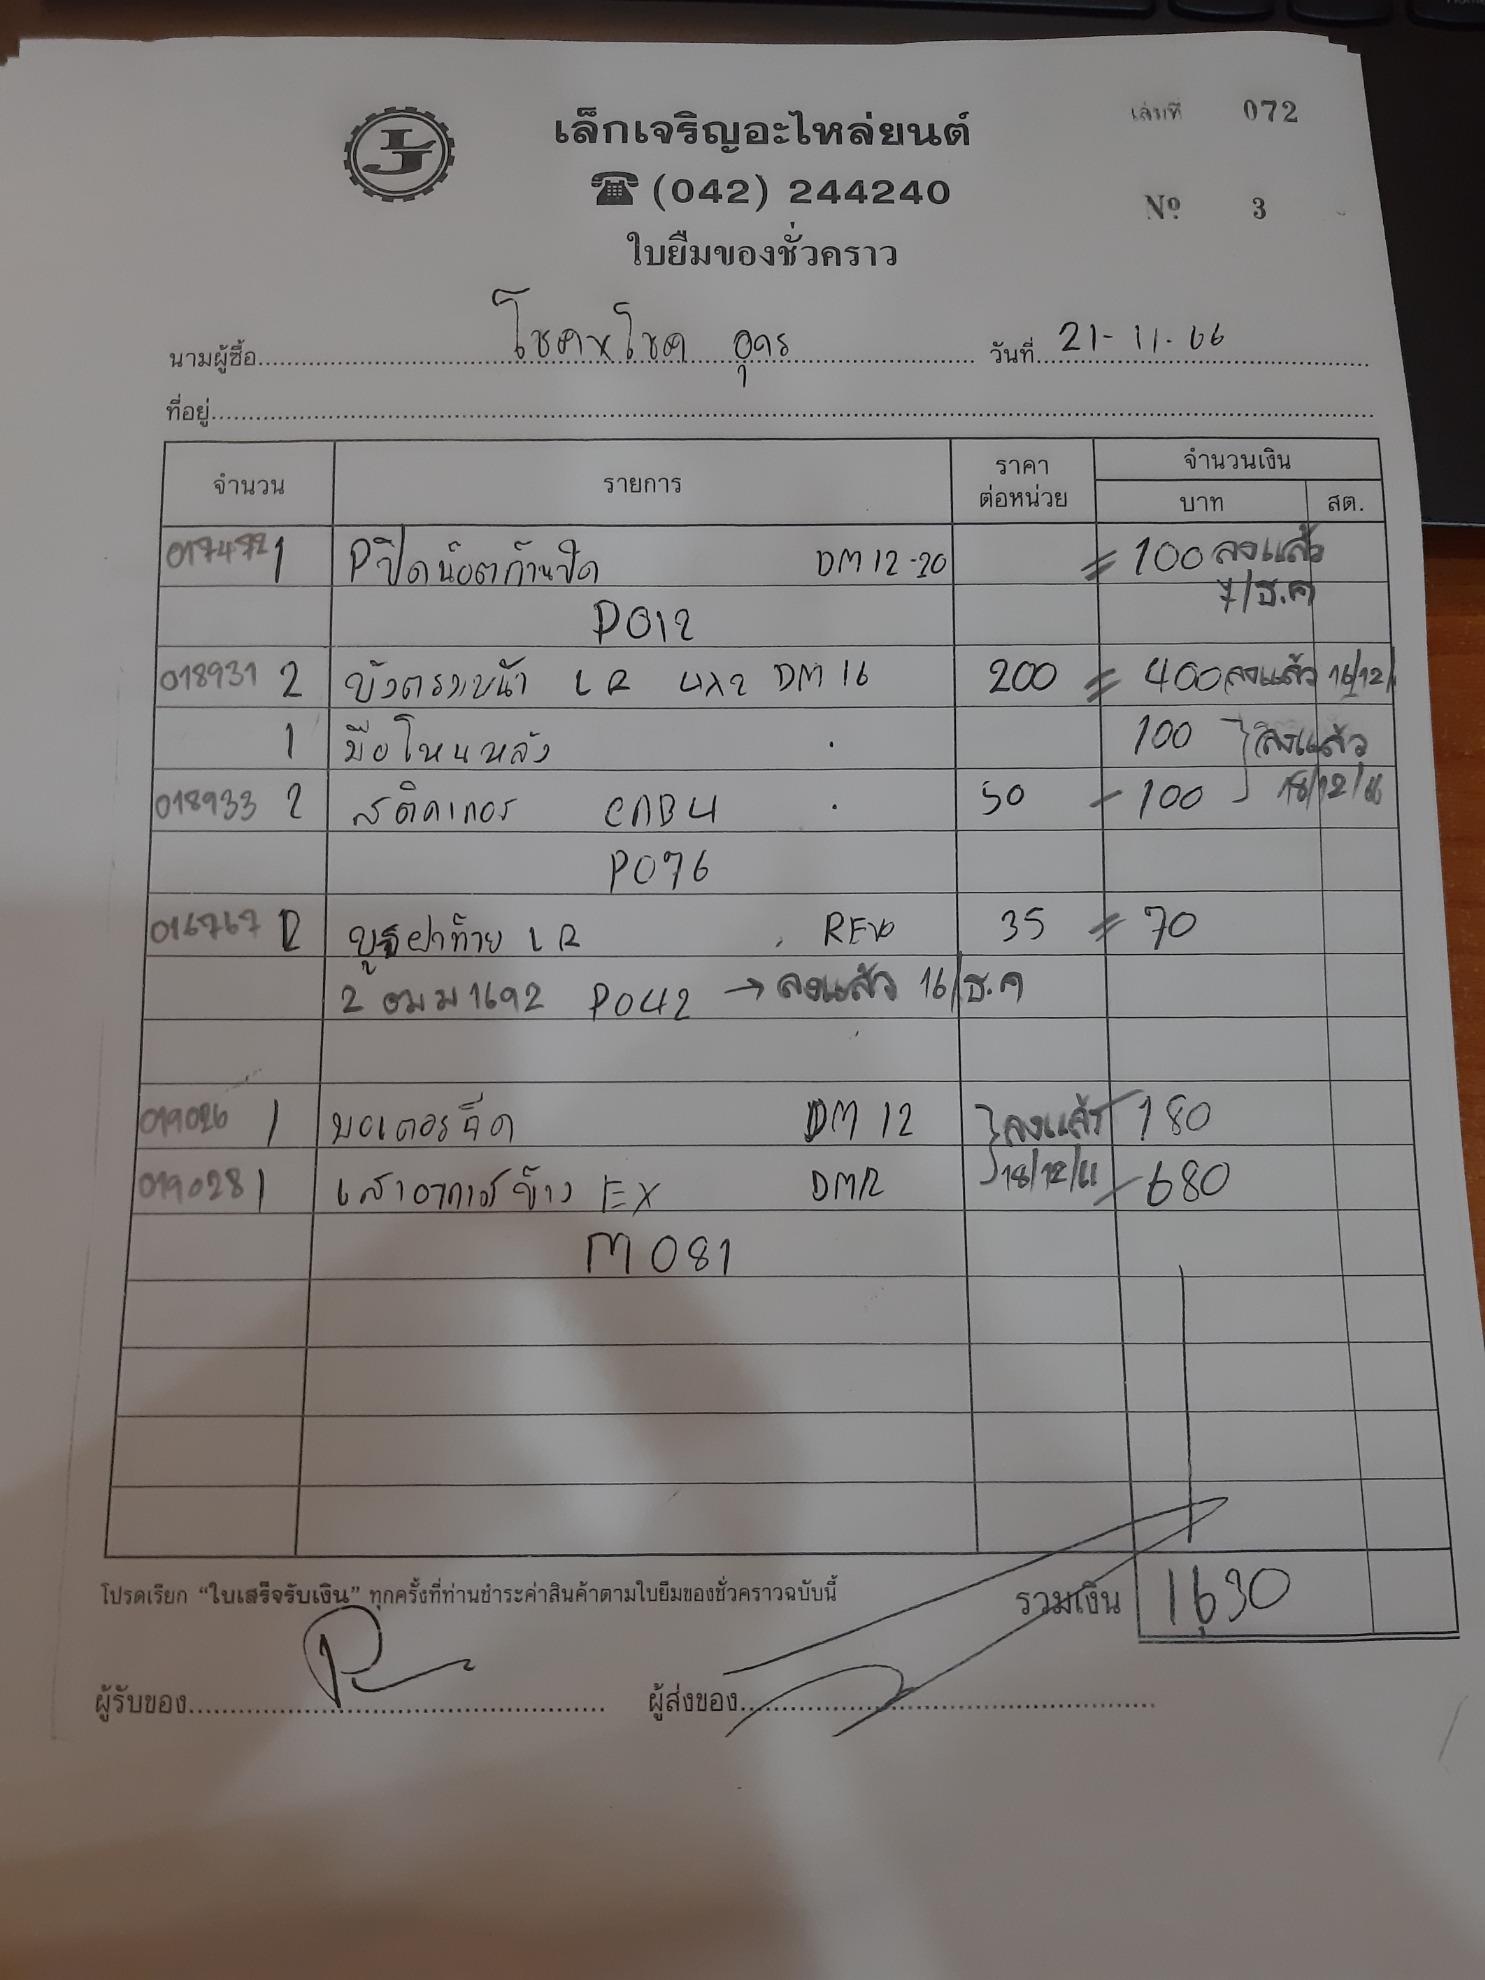 เล็กเจริญอะไหล่ยนต์
เล่มที่ 072
(042) 244240
Nº 3
ใบยืมของชั่วคราว
นามผู้ซื้อ โชคxโชค อุดร วันที่ 21-11-66
ที่อยู่
จำนวน รายการ ราคาต่อหน่วย จำนวนเงิน
บาท สต.
017472 1 Pปิดน๊อตก้านปัด DM12-20 100 ลงแล้ว
7/ธ.ค
P012
018931 2 บังตรงหน้า LR DM16 200 400 ลงแล้ว 16/12/
1 มือโหนหลัง 100 ลงแล้ว
018933 2 สติคเกอร์ CAB4 50 100 18/12/66
P076
016767 2 ฝาท้าย LR REVO 35 70
2 อมม1692 P042 → ลงแล้ว 16/ธ.ค
019026 1 มอเตอร์ฉีด DM12 ลงแล้ว 180
019028 1 เสาอากาศข้าง EX DM12 18/12/66 680
M081
โปรดเรียก “ใบเสร็จรับเงิน” ทุกครั้งที่ท่านชำระค่าสินค้าตามใบยืมของชั่วคราวฉบับนี้ รวมเงิน 1,630
ผู้รับของ ผู้ส่งของ